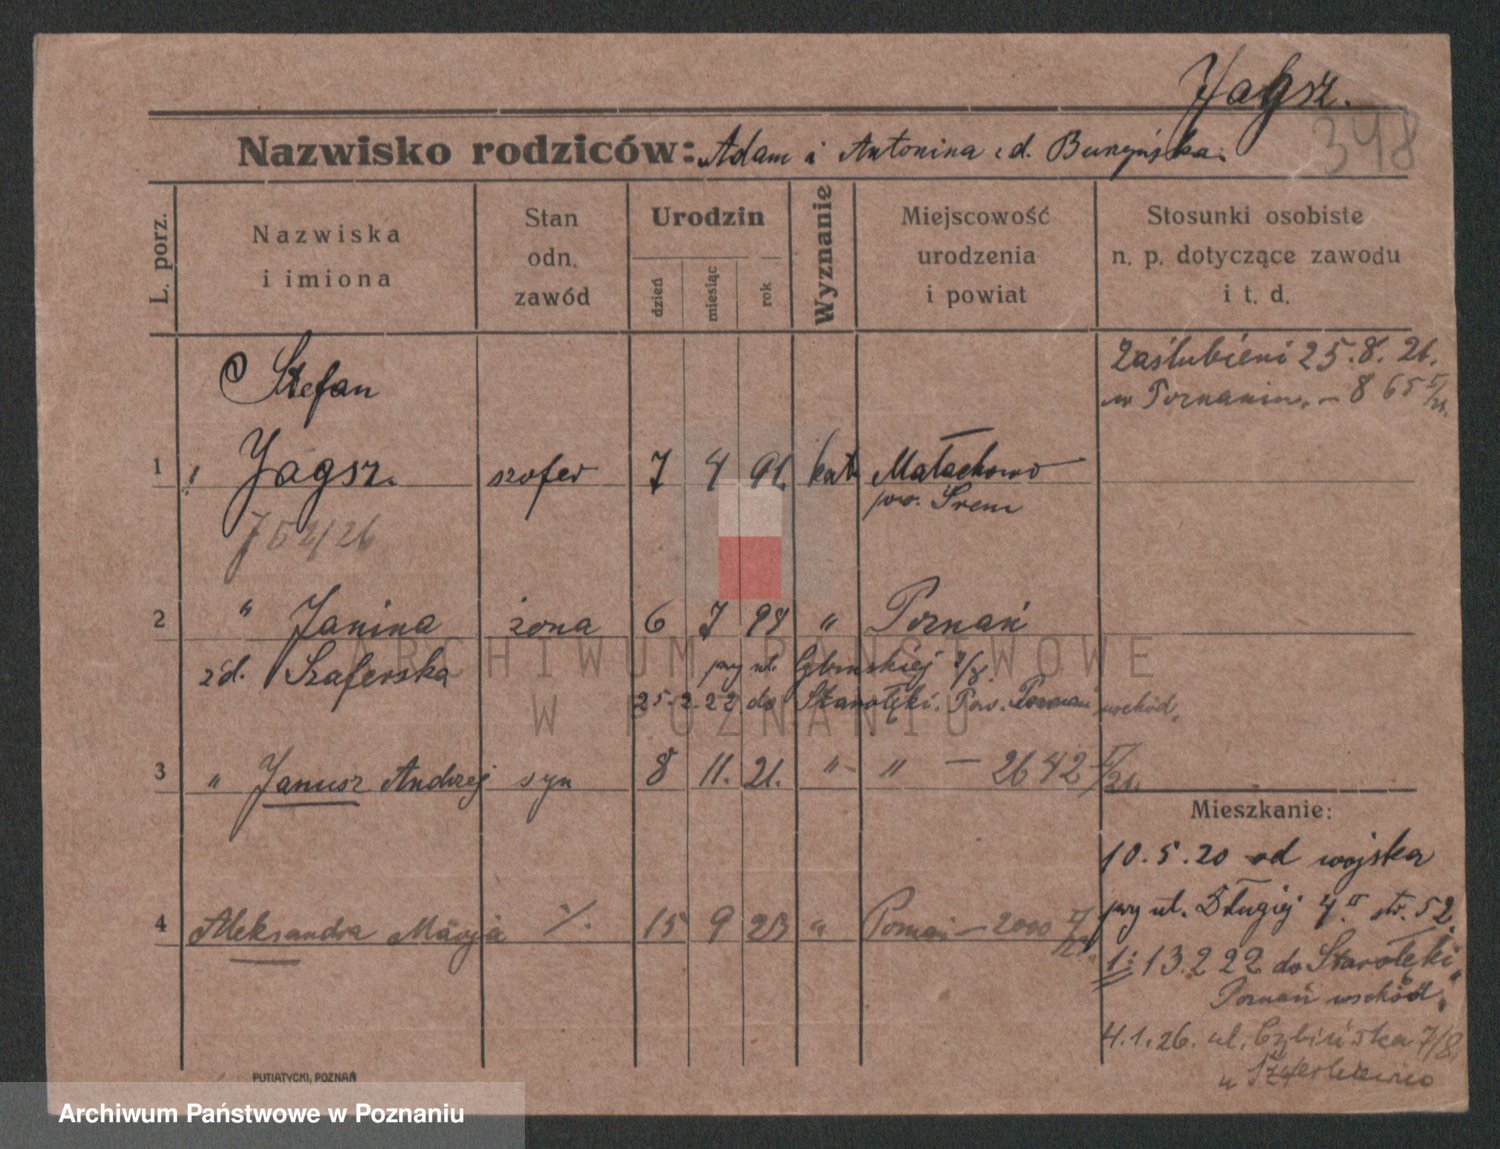 Jagsz.
348
Nazwisko rodziców: Adam i Antonina z d.
L. porz.
Nazwiska
i imiona
Stan
odn.
zawód
Urodzin
dzień
miesiąc
rok
Wyznanie
Miejscowość
urodzenia
i powiat
Stosunki osobiste
n. p. dotyczące zawodu
i t. d.
Zaślubieni 25.8.21.
w Poznaniu. – 865 V/21.
Stefan
1 Jagsz. szofer 7 4 91. kat. Małachowo
pow. Śrem
2 " Janina żona 6 7 98 " Poznań
zd. Szaferska przy ul.
25.2.22 do Starołęki. Pow. Poznań wschód.
3 " Janusz Andrzej syn 8 11. 21. " " – 2642 V/21.
Mieszkanie:
10.5.20 od wojska
przy ul. Długiej 4 II str. 52
4 Aleksandra Marja 15 9 23 " Poznań – 2000
1: 13.2.22 do Starołęki
Poznań wschód.
4.1.26. ul. 7/8.
u
PUTIATYCKI, POZNAŃ
ARCHIWUM PAŃSTWOWE
W POZNANIU
Archiwum Państwowe w Poznaniu